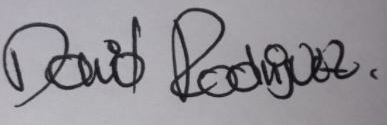 David Rodriguez.